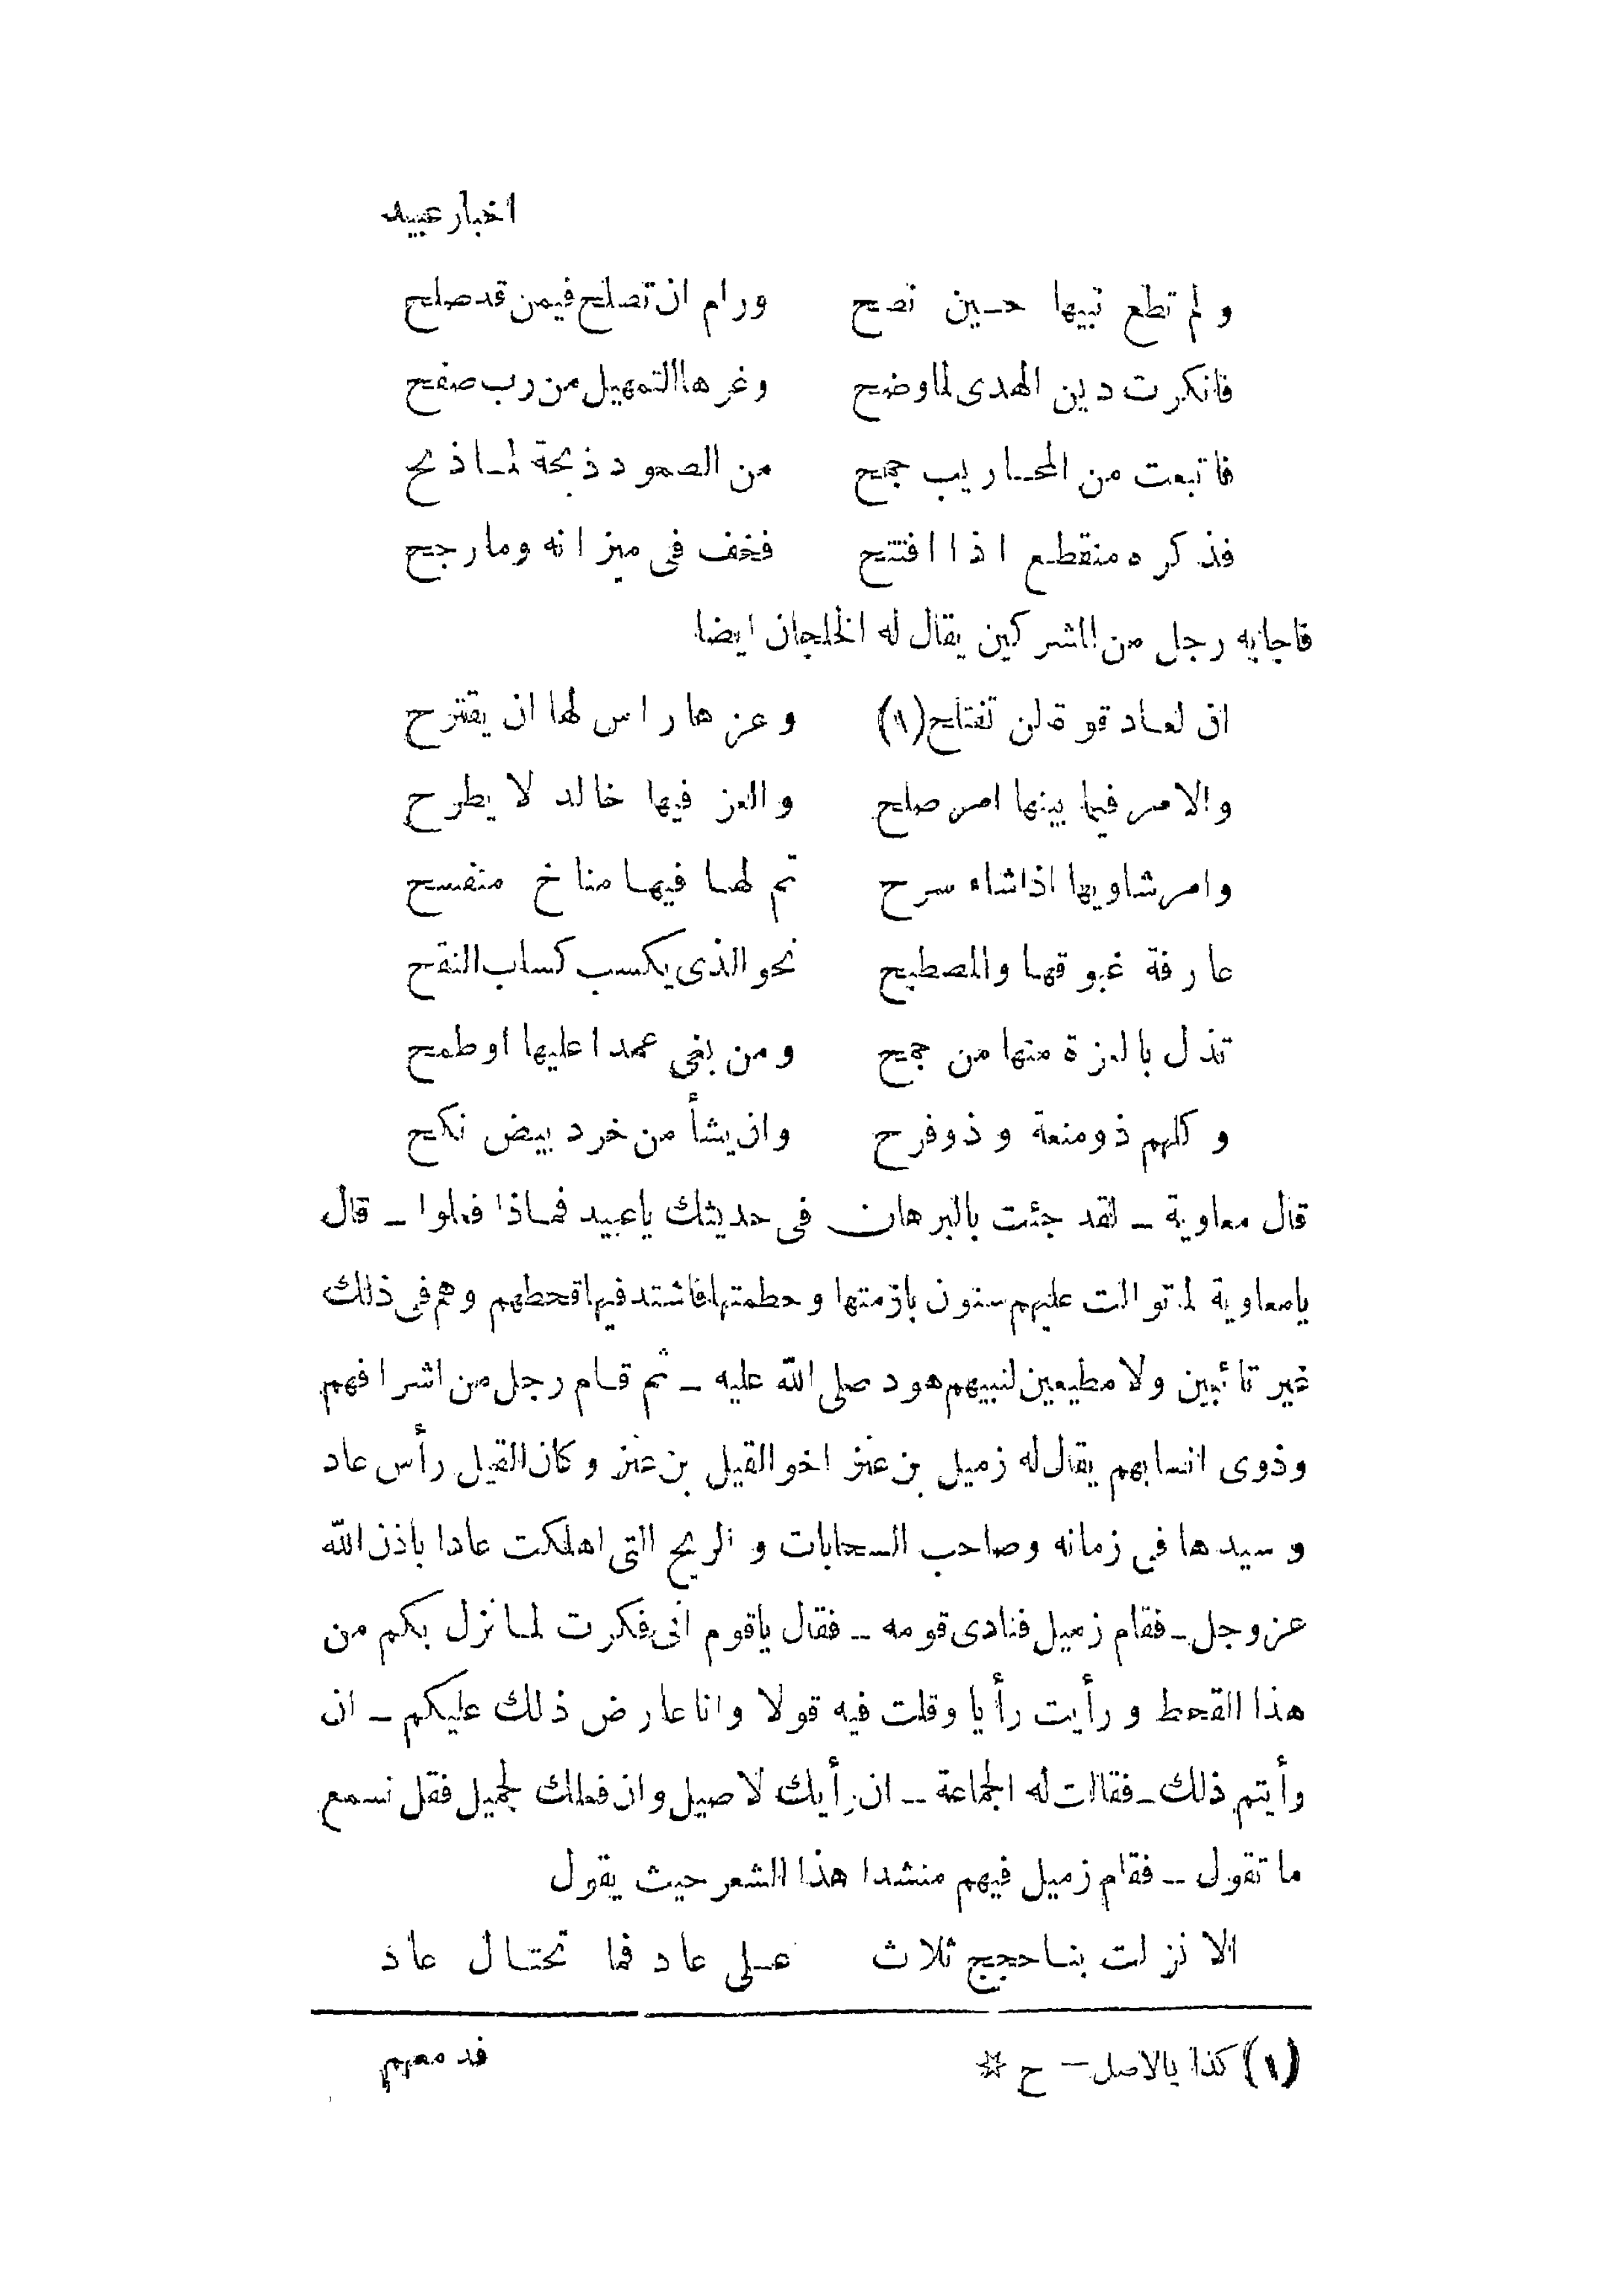 اخبار عبيد
ولم تطع نبيها حين نصح ورام ان تصلح فيمن قد صلح
فانكرت دين الهدى لما وضح وغرها التمهيل من رب صفح
فاتبعت من المحاريب جمح من الصمود ذبحة لما ذبح
فذكره منقطع اذا افتتح فخف فى ميزانه وما رجح
فاجابه رجل من المشركين يقال له الخلجان ايضا
ان لعاد قوة لن تفتلح (١) وعزها راس لها ان يقترح
والامر فيما بينها امر صلح والعز فيها خالد لا يطرح
وامر شاويها اذا شاء سرح ثم لها فيها مناخ منفسح
عارفة غبوقها والمصطبح نحو الذى يكسب كساب النقح
تذل بالعزة منها من جمح ومن بغى عمدا عليها او طمح
وكلهم ذو منعة وذو فرح وان يشأ من خرد بيض نكح
قال معاوية ــ لقد جئت بالبرهان فى حديثك يا عبيد فماذا فعلوا ــ قال
يا معاوية لما توالت عليهم سنون بازمتها وحطمتها فاشتد فيها قحطهم وهم فى ذلك
غير تائبين ولا مطيعين لنبيهم هود صلى الله عليه ــ ثم قام رجل من اشرافهم
وذوى انسابهم يقال له زميل بن عنز اخو القيل بن عنز وكان القيل رأس عاد
وسيدها فى زمانه وصاحب السحابات والريح التى اهلكت عادا باذن الله
عز وجل ــ فقام زميل فنادى قومه ــ فقال يا قوم انى فكرت لما نزل بكم من
هذا القحط ورأيت رأيا وقلت فيه قولا وانا عارض ذلك عليكم ــ ان
رأيتم ذلك ــ فقالت له الجماعة ــ ان رأيك لاصيل وان فعلك لجميل فقل نسمع
ما تقول ــ فقام زميل فيهم منشدا هذا الشعر حيث يقول
الا نزلت بنا حجج ثلاث على عاد فما تحتال عاد
(١) كذا بالاصل ــ ح ☆
فد معهم